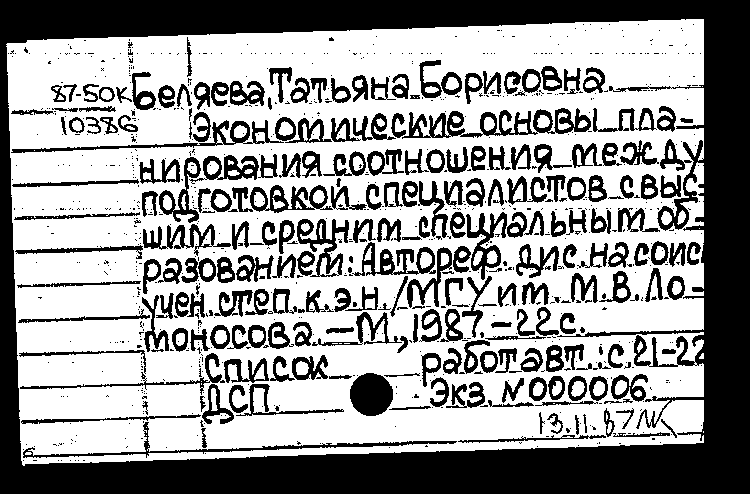 87-50к Беляева, Татьяна Борисовна.
10386 Экономические основы пла-
нирования соотношения между
подготовкой специалистов с выс-
шим и средним специальным об-
разованием: Автореф. дис. на соис
учен. степ. к. э. н. / МГУ им. М. В. Ло-
моносова. — М., 1987. – 22 с.
Список работ авт.: с. 21-22
ДСП. Экз. N 000006.
13.11.87